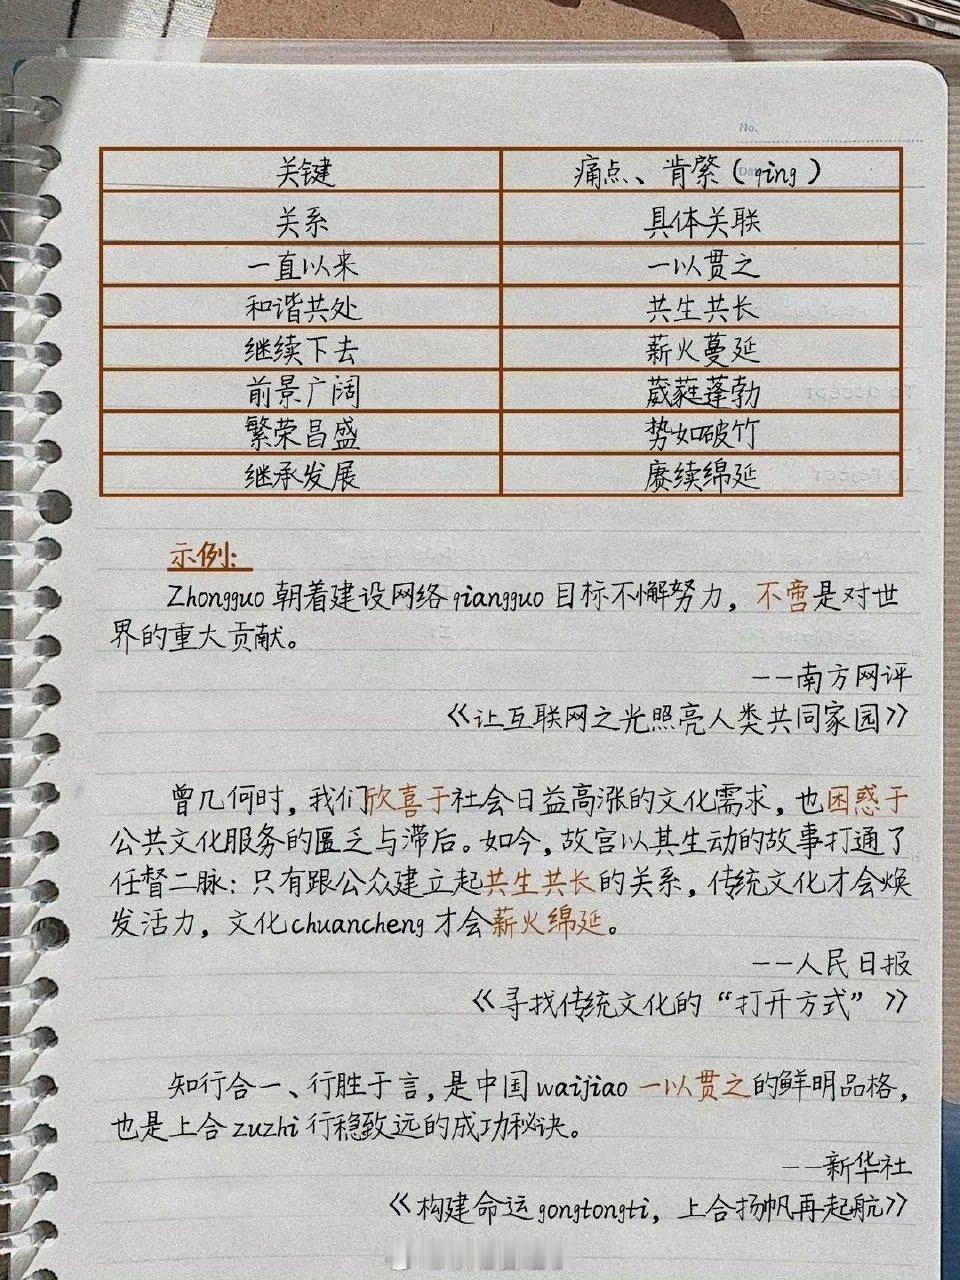 No.
关键 痛点、肯綮（qing）
关系 具体关联
一直以来 一以贯之
和谐共处 共生共长
继续下去 薪火蔓延
前景广阔 葳蕤蓬勃
繁荣昌盛 势如破竹
继承发展 赓续绵延
示例：
Zhongguo朝着建设网络qiangguo目标不懈努力，不啻是对世
界的重大贡献。
——南方网评
《让互联网之光照亮人类共同家园》
曾几何时，我们欣喜于社会日益高涨的文化需求，也困惑于
公共文化服务的匮乏与滞后。如今，故宫以其生动的故事打通了
任督二脉：只有跟公众建立起共生共长的关系，传统文化才会焕
发活力，文化chuancheng才会薪火绵延。
——人民日报
《寻找传统文化的“打开方式”》
知行合一、行胜于言，是中国waijiao一以贯之的鲜明品格，
也是上合zuzhi行稳致远的成功秘诀。
——新华社
《构建命运gongtongti，上合扬帆再起航》